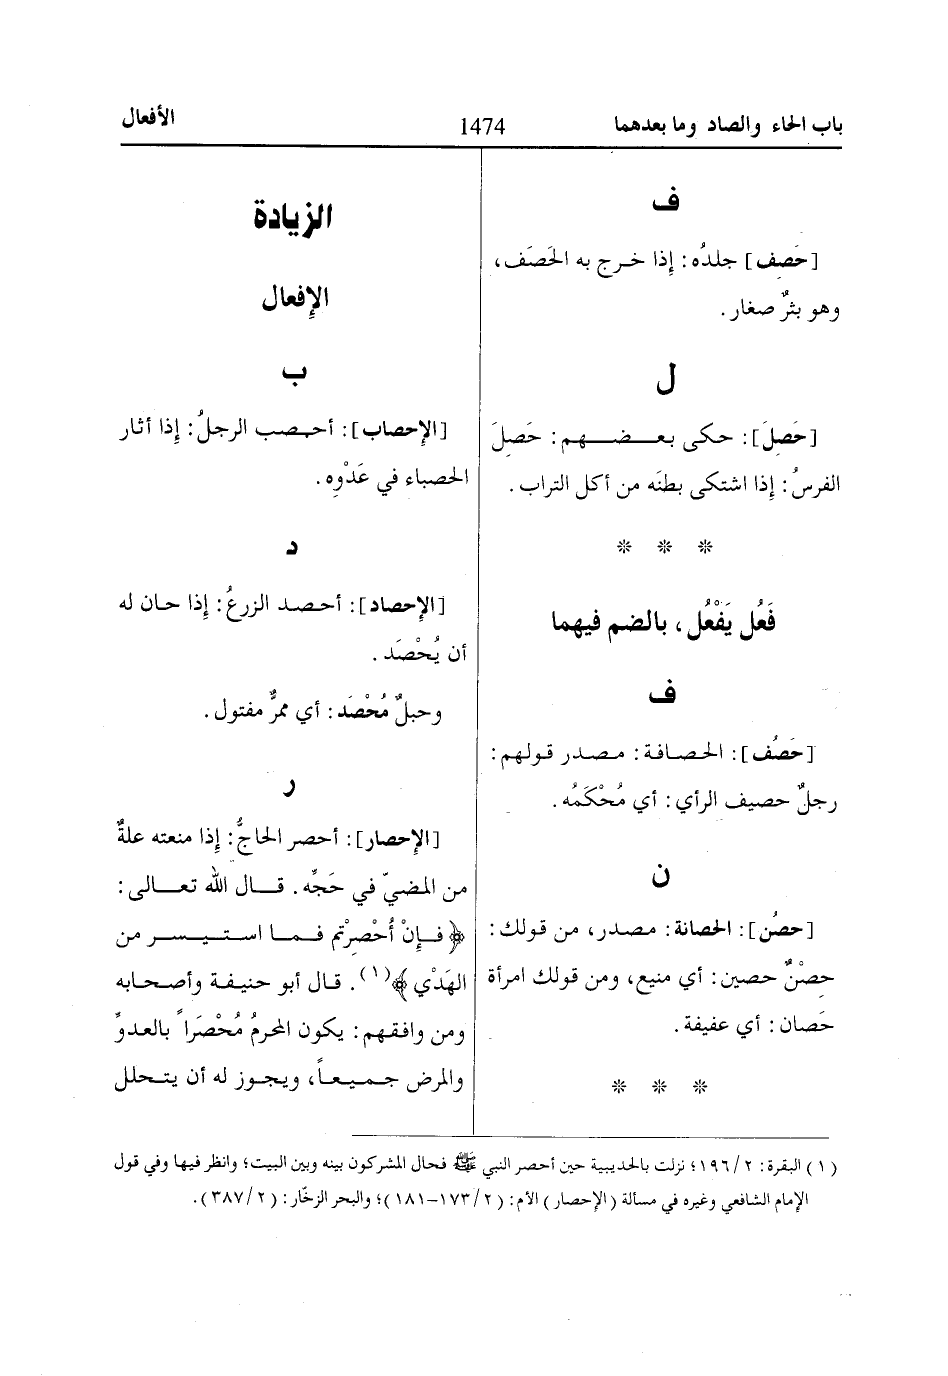 باب الحاء والصاد وما بعدهما
1474
الأفعال
ف
[حَصِف] جلدُه: إذا خرج به الحَصَف،
وهو بثرٌ صغار.
ل
[حَصِلَ]: حكى بعضهم: حَصِلَ
الفرسُ: إذا اشتكى بطنَه من أكل التراب.
* * *
فَعُل يَفْعُل، بالضم فيهما
ف
[حَصُف]: الحصافة: مصدر قولهم:
رجلٌ حصيف الرأي: أي مُحْكَمُه.
ن
[حصُن]: الحصانة: مصدر، من قولك:
حصْنٌ حصين: أي منيع، ومن قولك امرأة
حَصان: أي عفيفة.
* * *
الزيادة
الإفعال
ب
[الإحصاب]: أحصب الرجلُ: إذا أثار
الحصباء في عَدْوِه.
د
[الإحصاد]: أحصد الزرعُ: إذا حان له
أن يُحْصَد.
وحبلٌ مُحْصَد: أي ممرٌّ مفتول.
ر
[الإحصار]: أحصر الحاجُّ: إذا منعته علةٌ
من المضيّ في حَجِّه. قال الله تعالى:
﴿فإنْ أُحْصِرْتم فما استيسر من
الهَدْي﴾(١). قال أبو حنيفة وأصحابه
ومن وافقهم: يكون المحرمُ مُحْصَراً بالعدوِّ
والمرض جميعاً، ويجوز له أن يتحلل
(١) البقرة: ١٩٦/٢؛ نزلت بالحديبية حين أحصر النبي ﷺ فحال المشركون بينه وبين البيت؛ وانظر فيها وفي قول
الإمام الشافعي وغيره في مسألة (الإحصار) الأم: (١٧٣/٢-١٨١)؛ والبحر الزخّار: (٣٨٧/٢).